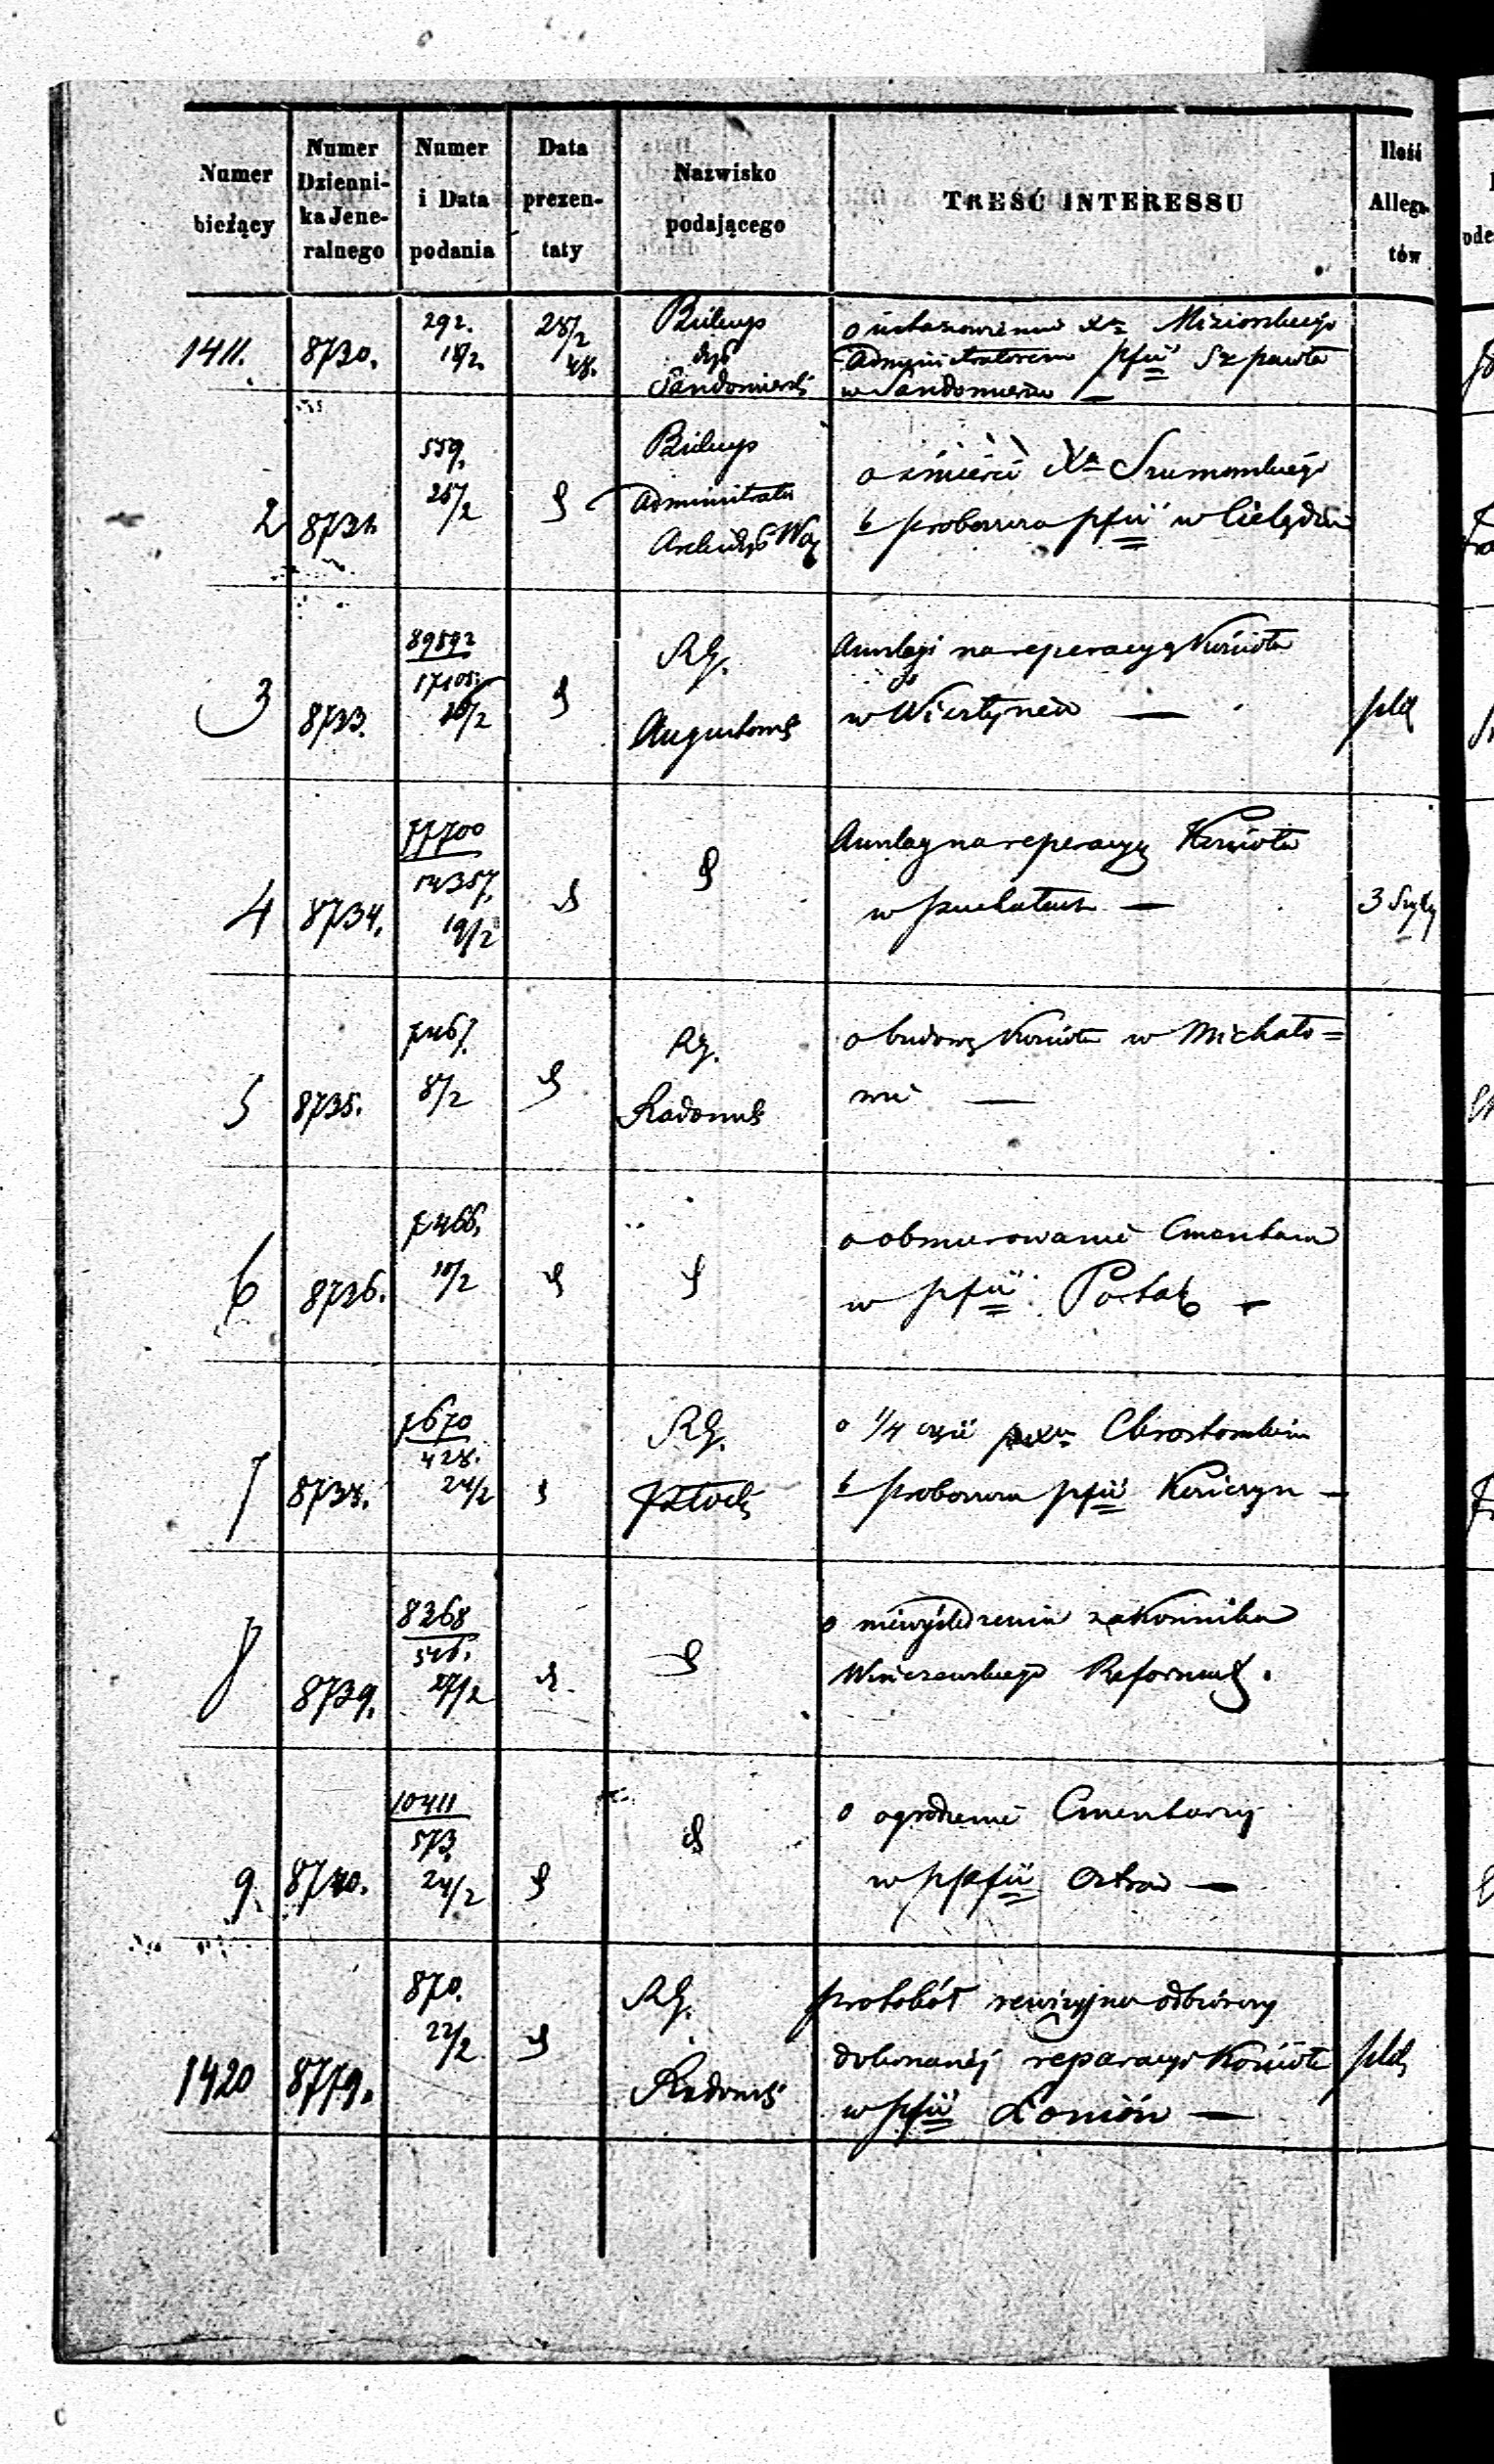 Numer bieżący
Numer Dzienni-ka Jene-ralnego
Numer i Data podania
Data prezen-taty
Nazwisko podającego
TREŚĆ INTERESSU
Ilość Allega-tów
1411. 8730. 292. 18/2 28/2 48. Biskup
dyś
Sandomierski
o ustanowieniu Xa Miziorskiego
Administratorem pfii Sz pawła
w Sandomierzu —
2 8731. 559. 25/2 Biskup
Administrator
Archidyś
o śmierci Xa Szumowskiego
b proboszcza pfii w
3 8733. 89592
17105. 26/2 RG.
Augustowski
Anszlagi na reperacyą Kościoła
w —
4 8734. 77700
14357. 19/2
Anszlag na reperacyą Kościoła
w —
3 Szyty
5 8735. 7467. 8/2 RG.
Radomski
o budowę Kościoła w Michało=
wie —
6 8736. 7466. 10/2
o obmurowanie Cmentarza
w pfii —
7 8738. 7670
428. 24/2 RG.
Płocki
o 1/4 części
b proboszcza pfii —
8 8739. 8368
546. 27/2
o niewyśledzeniu zakonnika
Reformaty.
9. 8740. 10411
573. 24/2
o ogrodzenie Cmentarzy
w pfii Ostrów —
1420 8779. 870. 22/2 RG.
Radomski
protokół rewizyjno odbiorczy
dokonanéj reparacyi Kościoła
w pfii Łoniów —